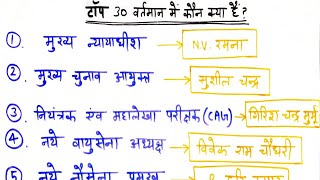 टॉप 30 वर्तमान में कौन क्या है?
1. मुख्य न्यायाधीश → N.V. रमना
2. मुख्य चुनाव आयुक्त → सुशील चन्द्र
3. नियंत्रक एंव महालेखा परीक्षक (CAG) → गिरिश चन्द्र मुर्मू
4. नये वायुसेना अध्यक्ष → विवेक राम चौधरी
5. नये नौसेना प्रमुख